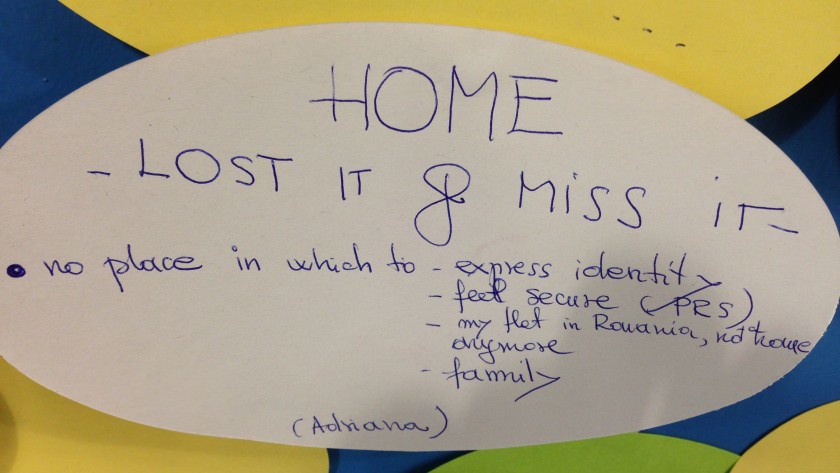 HOME
- LOST IT & MISS IT -
• no place in which to - express identity
- feel secure (PRS)
- my flat in Romania, not home
anymore
- family
(Adriana)